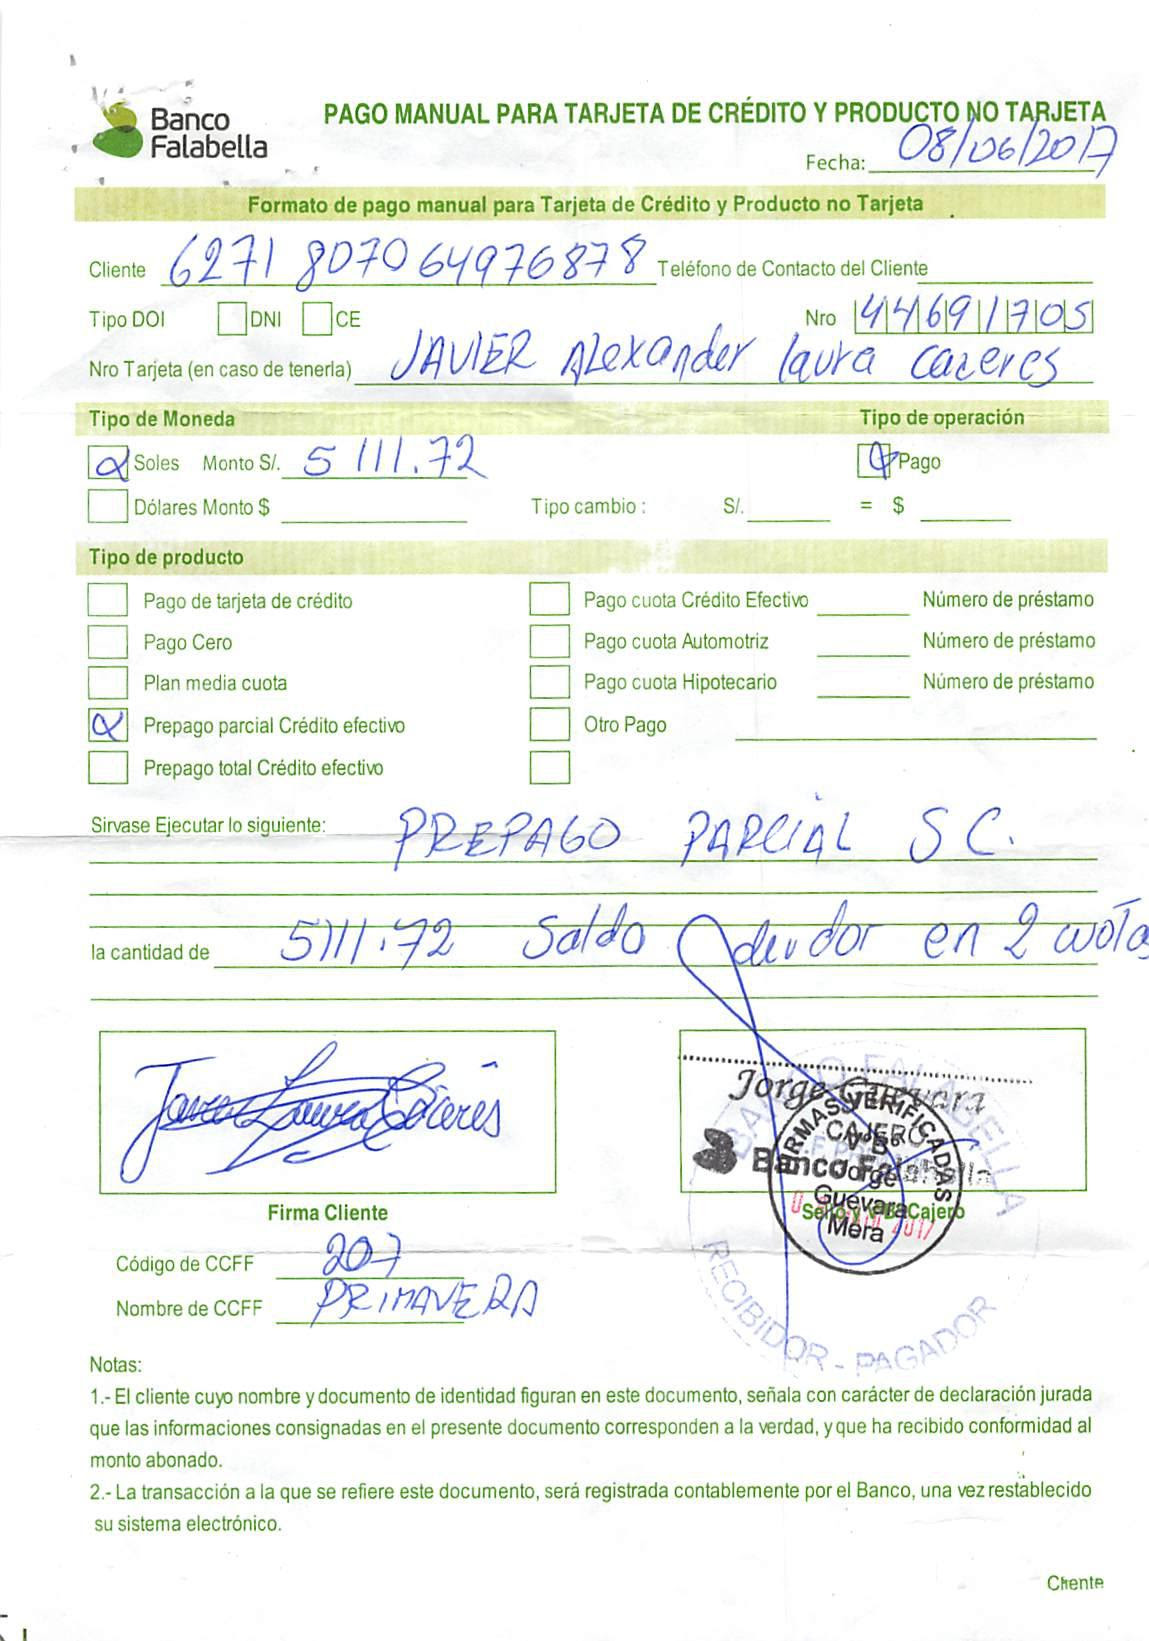 Banco
Falabella
PAGO MANUAL PARA TARJETA DE CRÉDITO Y PRODUCTO NO TARJETA
Fecha: 08/06/2017
Formato de pago manual para Tarjeta de Crédito y Producto no Tarjeta
Cliente 6271 8070 64976878 Teléfono de Contacto del Cliente
Tipo DOI DNI CE Nro 44691705
Nro Tarjeta (en caso de tenerla) JAVIER Alexander laura cazeres
Tipo de Moneda Tipo de operación
Soles Monto S/. 5111.72 Pago
Dólares Monto $ Tipo cambio : S/. = $
Tipo de producto
Pago de tarjeta de crédito Pago cuota Crédito Efectivo Número de préstamo
Pago Cero Pago cuota Automotriz Número de préstamo
Plan media cuota Pago cuota Hipotecario Número de préstamo
Prepago parcial Crédito efectivo Otro Pago
Prepago total Crédito efectivo
Sirvase Ejecutar lo siguiente: PREPAGO PARCIAL S C.
la cantidad de 5111.72 Saldo deudor en 2 cuota
Javier Laura Cáceres
Jorge Guevara
BANCO FALABELLA
FIRMAS VERIFICADAS
CAJERO
V°B°
Banco Falabella
Jorge
Guevara
Mera
Sello y V°B° Cajero
2017
RECIBIDOR - PAGADOR
Firma Cliente
Código de CCFF 207
Nombre de CCFF PRIMAVERA
Notas:
1.- El cliente cuyo nombre y documento de identidad figuran en este documento, señala con carácter de declaración jurada
que las informaciones consignadas en el presente documento corresponden a la verdad, y que ha recibido conformidad al
monto abonado.
2.- La transacción a la que se refiere este documento, será registrada contablemente por el Banco, una vez restablecido
su sistema electrónico.
Cliente